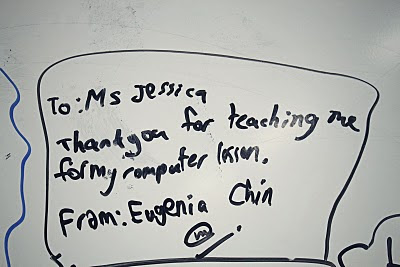 To: Ms Jessica
Thankyou for teaching me
for my computer lesson.
From: Eugenia Chin